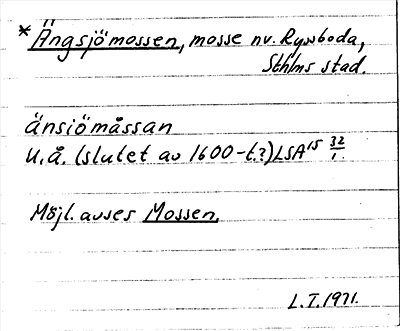 *Ängsjömossen, mosse nv. Rynboda,
Sthlms stad.
änsiömåssan
u.å. (slutet av 1600-t.?) LSA A15 32/1.
Möjl. avses Mossen.
L.I. 1971.